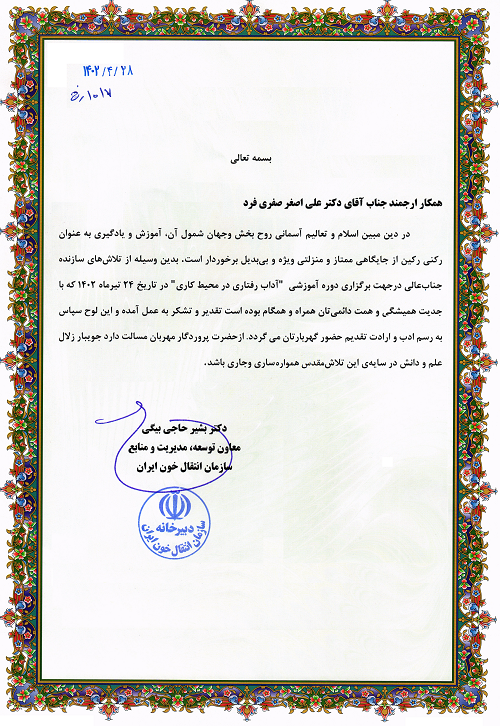 ۱۴۰۲/۴/۲۸
۱۰۱۷
بسمه تعالی
همکار ارجمند جناب آقای دکتر علی اصغر صفری فرد
در دین مبین اسلام و تعالیم آسمانی روح بخش وجهان شمول آن، آموزش و یادگیری به عنوان
رکنی رکین از جایگاهی ممتاز و منزلتی ویژه و بی‌بدیل برخوردار است. بدین وسیله از تلاش‌های سازنده
جناب‌عالی درجهت برگزاری دوره آموزشی "آداب رفتاری در محیط کاری" در تاریخ ۲۴ تیرماه ۱۴۰۲ که با
جدیت همیشگی و همت دائمی‌تان همراه و همگام بوده است تقدیر و تشکر به عمل آمده و این لوح سپاس
به رسم ادب و ارادت تقدیم حضور گهربارتان می گردد. ازحضرت پروردگار مهربان مسالت دارد جویبار زلال
علم و دانش در سایه‌ی این تلاش‌مقدس همواره‌ساری وجاری باشد.
دکتر بشیر حاجی بیگی
معاون توسعه، مدیریت و منابع
سازمان انتقال خون ایران
دبیرخانه
سازمان انتقال خون ایران